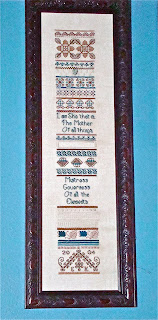 I am She that is
The Mother
Of all things
Mistress
Governess
Of all the
Elements